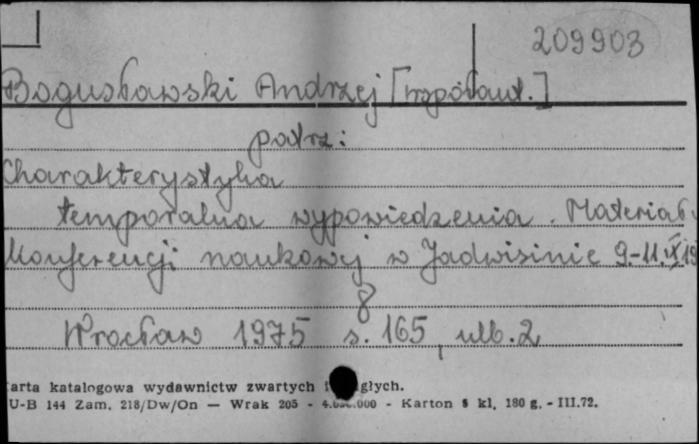 209903
Bogusławski Andrzej [współaut.]
patrz:
Charakterystyka
temporalna wypowiedzenia. Materiały
Konferencji naukowej w Jadwisinie 9.-11.
8
Wrocław 1975 s. 165, nlb. 2
arta katalogowa wydawnictw zwartych i głych.
U-B 144 Zam. 218/Dw/On — Wrak 205 - 000 - Karton kl, 180 g. - III.72.